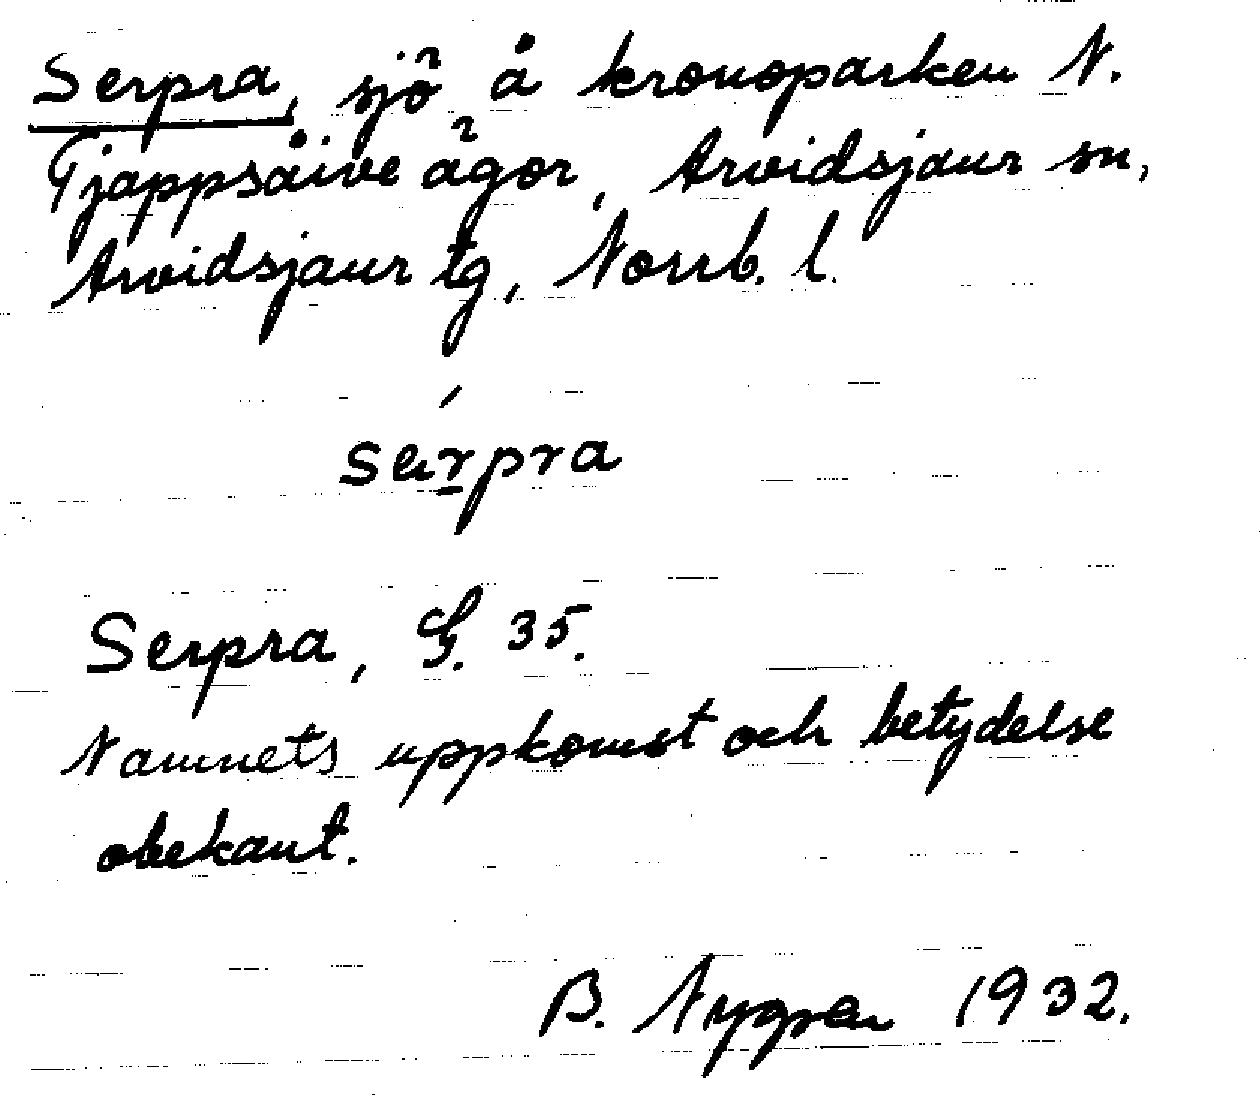 Serpra, sjö å kronoparken N.
Tjappsåive ägor, Arvidsjaur sn,
Arvidsjaur tg, Norrb. l.
særpra
Serpra, G. 35.
Namnets uppkomst och betydelse
obekant.
B. Nygren 1932.